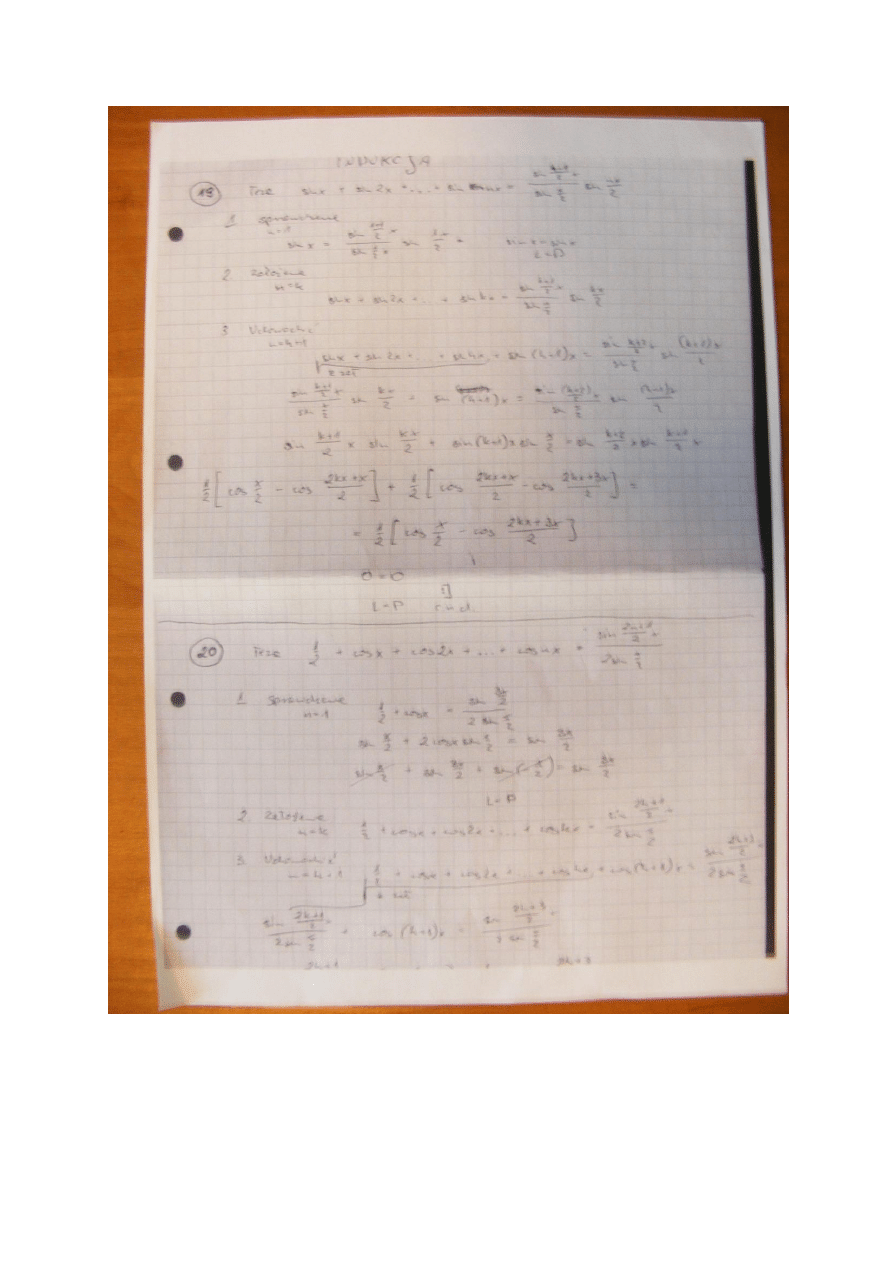 INDUKCJA
19 Teza sin x + sin 2x + ... + sin nx = \frac{sin \frac{n+1}{2}x}{sin \frac{x}{2}} sin \frac{nx}{2}
1 sprawdzenie n=1
sin x = \frac{sin \frac{1+1}{2}x}{sin \frac{1}{2}x} sin \frac{1}{2}x sin x = sin x
L=P
2. założenie n=k
sin x + sin 2x + ... + sin kx = \frac{sin \frac{k+1}{2}x}{sin \frac{x}{2}} sin \frac{kx}{2}
3 n=k+1
sin x + sin 2x + ... + sin kx + sin (k+1)x = \frac{sin \frac{k+2}{2}x}{sin \frac{x}{2}} sin \frac{(k+1)x}{2}
z zał
\frac{sin \frac{k+1}{2}x}{sin \frac{x}{2}} sin \frac{kx}{2} + sin (k+1)x = \frac{sin \frac{(k+2)}{2}x}{sin \frac{x}{2}} sin \frac{(k+1)x}{2}
sin \frac{k+1}{2} x sin \frac{kx}{2} + sin(k+1)x sin \frac{x}{2} = sin \frac{k+2}{2} x sin \frac{k+1}{2} x
\frac{1}{2} [ cos \frac{x}{2} - cos \frac{2kx+x}{2} ] + \frac{1}{2} [ cos \frac{2kx+x}{2} - cos \frac{2kx+3x}{2} ] =
= \frac{1}{2} [ cos \frac{x}{2} - cos \frac{2kx+3x}{2} ]
0=0
L=P c.n.d.
20 Teza \frac{1}{2} + cos x + cos 2x + ... + cos nx = \frac{sin \frac{2n+1}{2}x}{2 sin \frac{x}{2}}
1. sprawdzenie n=1
\frac{1}{2} + cos x = \frac{sin \frac{3x}{2}}{2 sin \frac{x}{2}}
sin \frac{x}{2} + 2 cos x sin \frac{x}{2} = sin \frac{3x}{2}
sin \frac{x}{2} + sin \frac{3x}{2} + sin (-\frac{x}{2}) = sin \frac{3x}{2}
L=P
2 założenie n=k
\frac{1}{2} + cos x + cos 2x + ... + cos kx = \frac{sin \frac{2k+1}{2}x}{2 sin \frac{x}{2}}
3. n=k+1
\frac{1}{2} + cos x + cos 2x + ... + cos kx + cos (k+1)x = \frac{sin \frac{2k+3}{2}x}{2 sin \frac{x}{2}}
z zał
\frac{sin \frac{2k+1}{2}x}{2 sin \frac{x}{2}} + cos (k+1)x = \frac{sin \frac{2k+3}{2}x}{2 sin \frac{x}{2}}
2k+1 2k+3